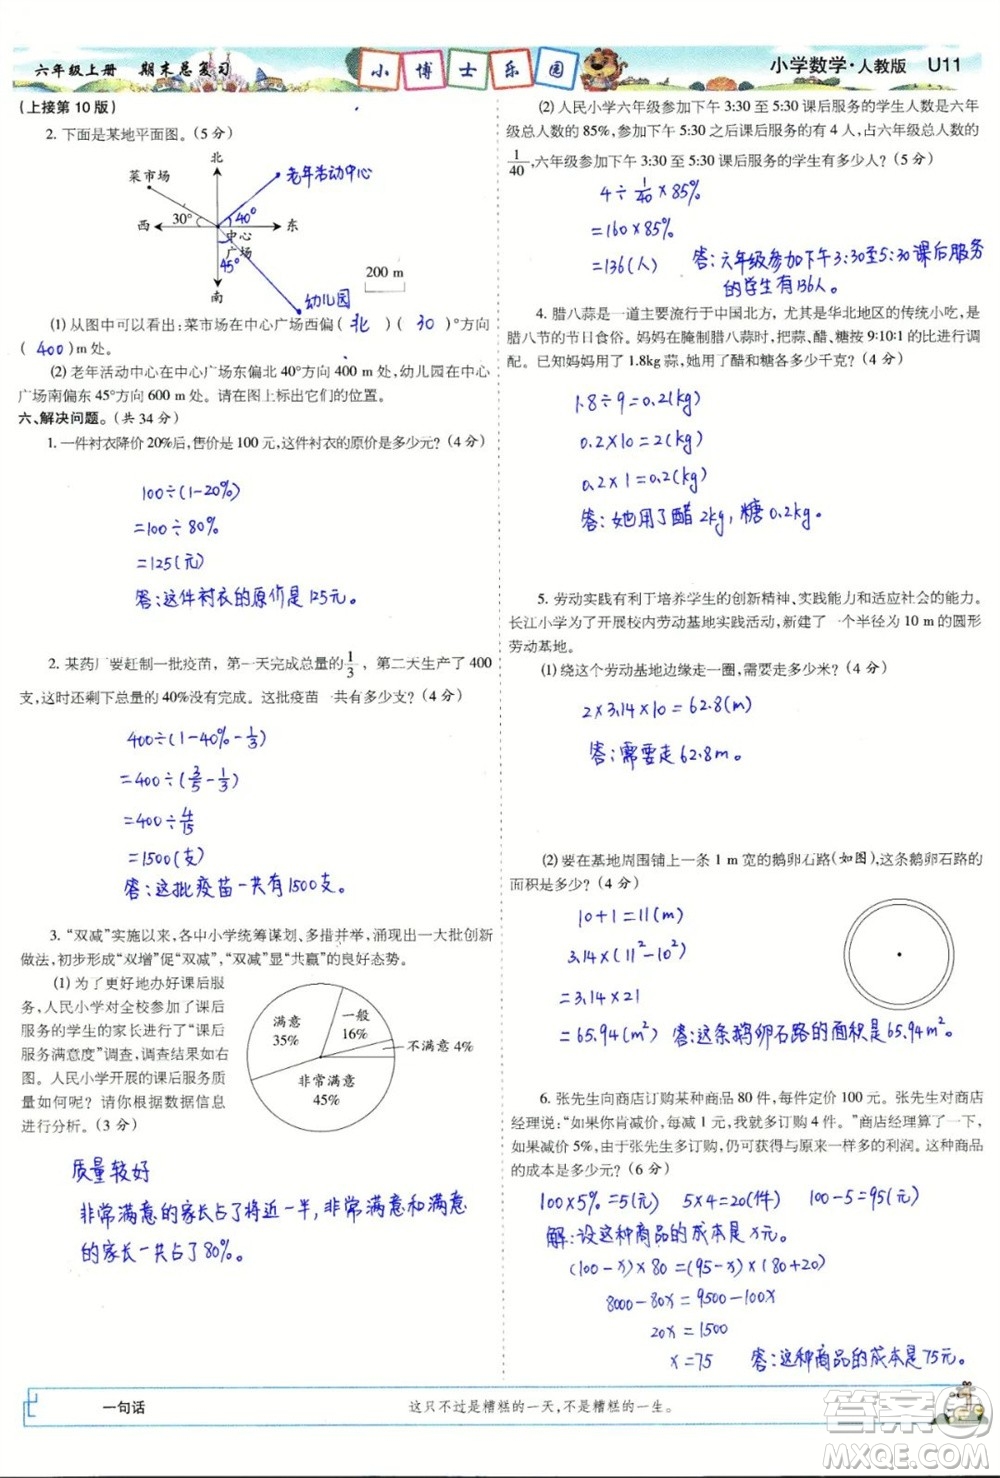 六年级上册 期末总复习
小博士乐园
小学数学·人教版 U11
(上接第 10 版)
2. 下面是某地平面图。(5 分)
北
菜市场
老年活动中心
西
30°
40°
东
中心
广场
45°
南
幼儿园
200 m
(1) 从图中可以看出:菜市场在中心广场西偏( 北 )( 30 )°方向
( 400 )m 处。
(2) 老年活动中心在中心广场东偏北 40°方向 400 m 处,幼儿园在中心
广场南偏东 45°方向 600 m 处。请在图上标出它们的位置。
六、解决问题。(共 34 分)
1. 一件衬衣降价 20%后,售价是 100 元,这件衬衣的原价是多少元?(4 分)
100÷(1-20%)
=100÷80%
=125(元)
答:这件衬衣的原价是125元。
2. 某药厂要赶制一批疫苗，第一天完成总量的1/3，第二天完成了 400
支,这时还剩下总量的 40%没有完成。这批疫苗一共有多少支?(4 分)
400÷(1-40%-1/3)
=400÷(3/5-1/3)
=400÷4/15
=1500(支)
答:这批疫苗一共有1500支。
3. “双减”实施以来,各中小学统筹谋划、多措并举,涌现出一大批创新
做法,初步形成“双增”促“双减”,“双减”显“共赢”的良好态势。
(1) 为了更好地办好课后服
务,人民小学对全校参加了课后
服务的学生的家长进行了“课后
服务满意度”调查,调查结果如右
图。人民小学开展的课后服务质
量如何呢？请你根据数据信息
进行分析。(3 分)
满意
35%
一般
16%
不满意 4%
非常满意
45%
质量较好
非常满意的家长占了将近一半,非常满意和满意
的家长一共占了80%。
(2) 人民小学六年级参加下午 3:30 至 5:30 课后服务的学生人数是六年
级总人数的 85%,参加下午 5:30 之后课后服务的有 4 人,占六年级总人数的
1/40,六年级参加下午 3:30 至 5:30 课后服务的学生有多少人?(5 分)
4÷1/40×85%
=160×85%
=136(人)
答:六年级参加下午3:30至5:30课后服务
的学生有136人。
4. 腊八蒜是一道主要流行于中国北方，尤其是华北地区的传统小吃,是
腊八节的节日食俗。妈妈在腌制腊八蒜时,把蒜、醋、糖按 9:10:1 进行调
配。已知妈妈用了 1.8kg 蒜,她用了醋和糖各多少千克?(4 分)
1.8÷9=0.2(kg)
0.2×10=2(kg)
0.2×1=0.2(kg)
答:她用了醋2kg,糖0.2kg。
5. 劳动实践有利于培养学生的创新精神、实践能力和适应社会的能力。
长江小学为了开展校内劳动基地实践活动,新建了一个半径为 10 m 的圆形
劳动基地。
(1) 绕这个劳动基地边缘走一圈,需要走多少米?(4 分)
2×3.14×10=62.8(m)
答:需要走62.8m。
(2) 要在基地周围铺上一条 1 m 宽的鹅卵石路(如图),这条鹅卵石路的
面积是多少?(4 分)
10+1=11(m)
3.14×(11²-10²)
=3.14×21
=65.94(m²) 答:这条鹅卵石路的面积是65.94m²。
6. 张先生向商店订购某种商品 80 件,每件定价 100 元。张先生向商店
经理说:“如果你肯减价,每减 1 元,我就多订购 4 件。”商店经理算了一下,
如果减价 5%,由于张先生多订购,仍可获得与原来一样多的利润。这种商品
的成本是多少元?(6 分)
100×5%=5(元) 5×4=20(件) 100-5=95(元)
解:设这种商品的成本是x元。
(100-x)×80=(95-x)×(80+20)
8000-80x=9500-100x
20x=1500
x=75
答:这种商品的成本是75元。
一句话
这只不过是糟糕的一天,不是糟糕的一生。
答案
MXQE.COM